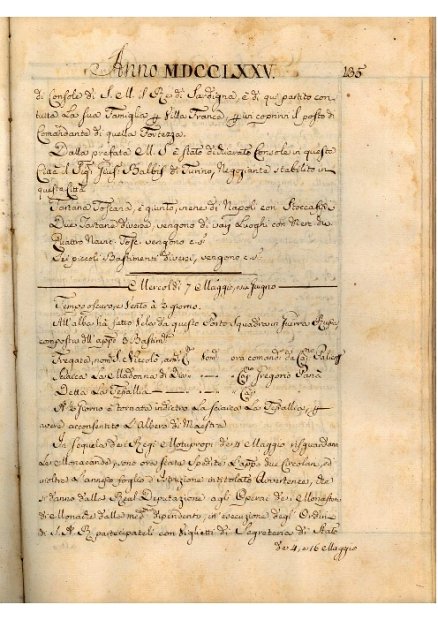 Anno MDCCLXXV. 135
di Console di S. M. il Re di Sardegna, e di qui partito con
tutta La sua Famiglia per Villa Franca, per ivi coprire il posto di
Comandante di quella Fortezza.
Dalla prefata M. S. è stato dichiarato Console in questa
Città il Sigr. Balbis di Torino, Neggiante stabilito in
questa Città
Tartana Toscana, è giunto, viene di Napoli con Stoccafisse
Due Tartane diverse, vengono di varj Luoghi con
Quattro Navic. Tosc. vengono c. s.
Dei piccoli Bastimenti diversi, vengono c. s.
Mercoldì 7 Maggio, Giugno
Tempo oscuro, e Vento à
All' alba hà fatto Vela da questo Porto Squadra in Guerra Russa
composta dll' appo. 3 Bastimti.
Fregata, nomta. S. Niccolò, ora comandta. da Capno.
Sciacca La Madonna di Capno. Gregorio
Detta La Tessallia Capno.
A giorno è tornata indietro La Sciacca La Tessallia, per
avere acconsentito L'Albero di Maestra
In sequela dei Regi Motupropri de 4 Maggio risguardanti
Le Monacande, sono ora state Spedite L'appe. due Circolari, ed
inoltre L'annesso foglio d'Istruzione intitolato Avvertenze, che
si danno dalla Real Deputazione agli Operai dei Monasteri
di Monache dalla medma. dipendenti, in esecuzione degl' Ordini
di S. A. R. partecipateli con Biglietti di Segreteria di Stato
de 4, e 16 Maggio